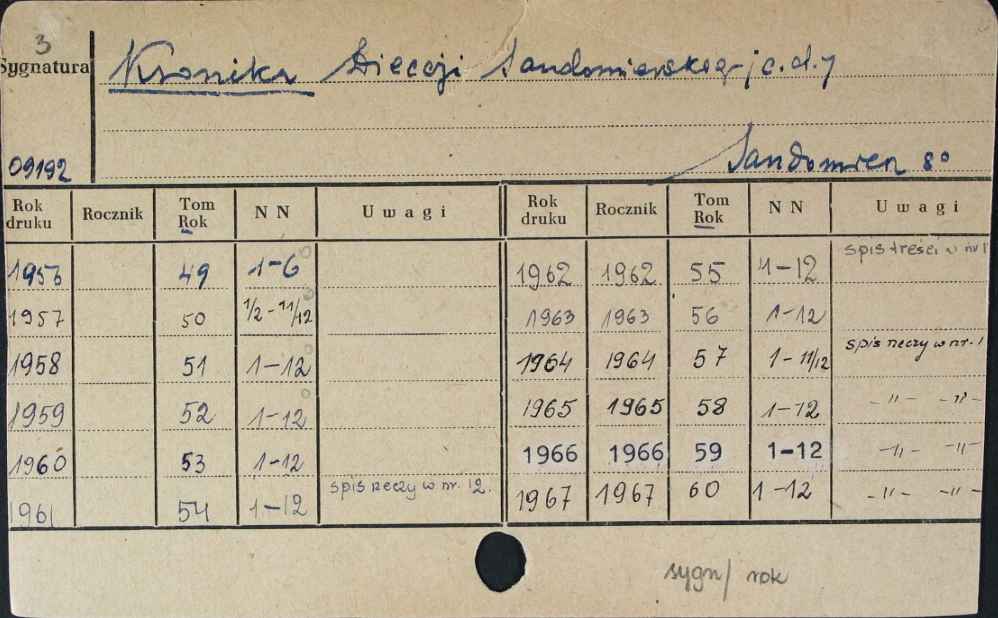 3
Sygnatura Kronika Diecezji Sandomierskiej c.d.
Sandomierz 8°
09192
Rok druku Rocznik Tom Rok NN Uwagi Rok druku Rocznik Tom Rok NN Uwagi
1956 49 1-6 1962 1962 55 1-12 spis treści w nr 1
1957 50 1/2-11/12 1963 1963 56 1-12
1958 51 1-12 1964 1964 57 1-11/12 spis rzeczy w nr. 1
1959 52 1-12 1965 1965 58 1-12 -"- -"-
1960 53 1-12 1966 1966 59 1-12 -"- -"-
1961 54 1-12 spis rzeczy w nr. 12. 1967 1967 60 1-12 -"- -"-
sygn/ rok